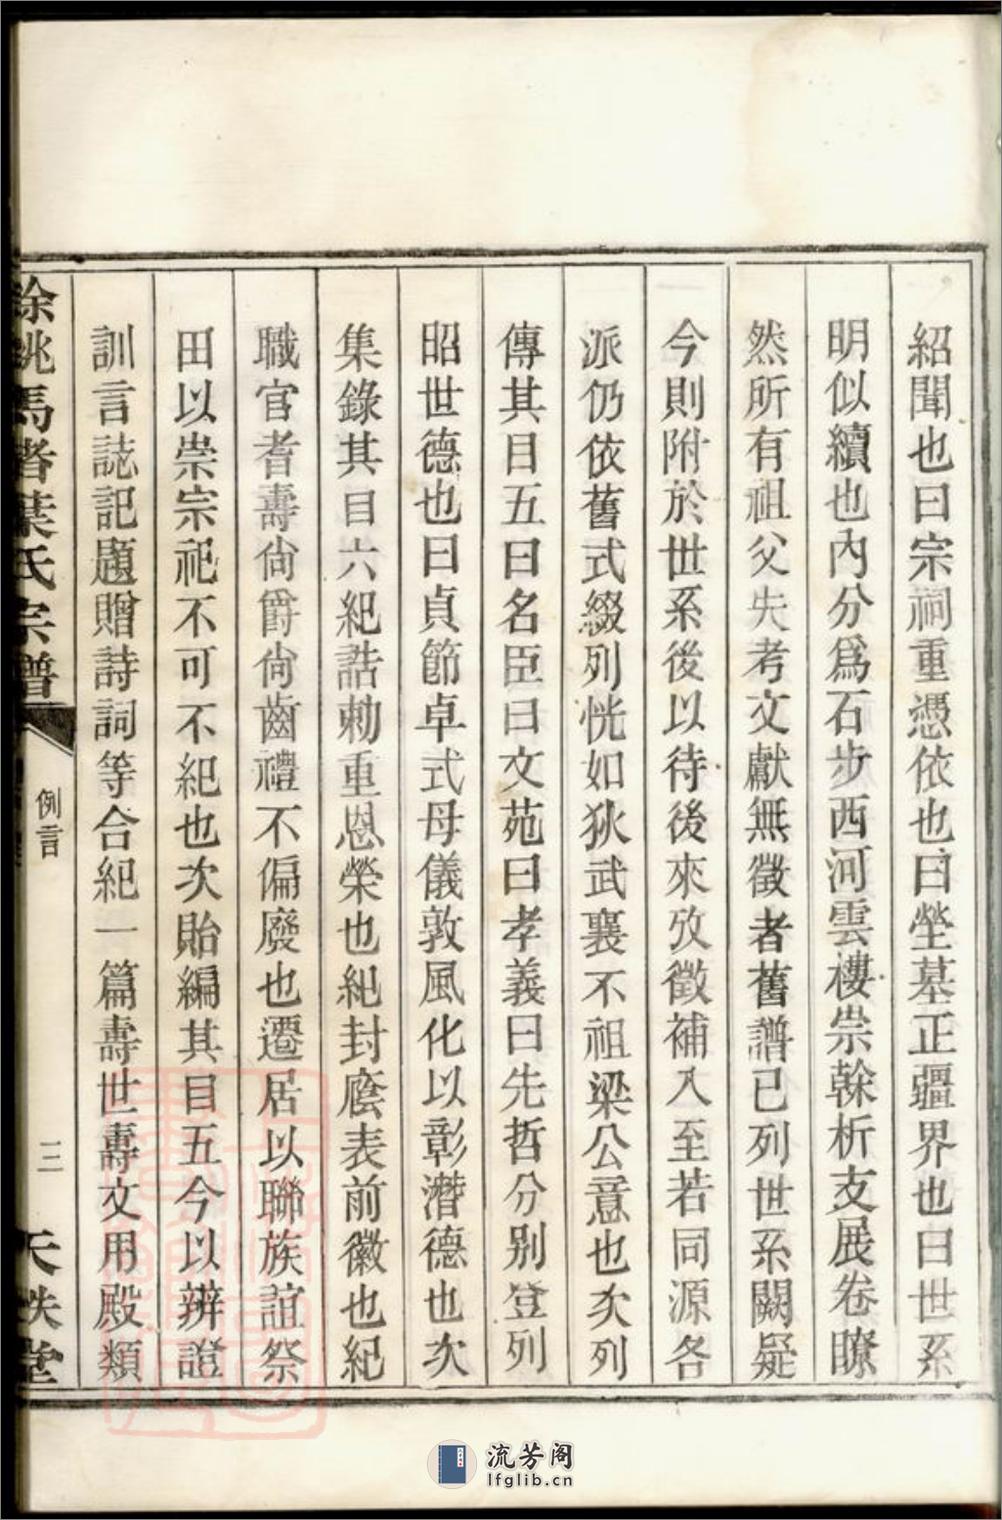 紹聞也曰宗祠重憑依也曰塋墓正疆界也曰世系
明似續也內分爲石步西河雲樓崇榦析支展卷瞭
然所有祖父失考文獻無徵者舊譜已列世系闕疑
今則附於世系後以待後來攷徵補入至若同源各
派仍依舊式綴列恍如狄武襄不祖梁公意也次列
傳其目五曰名臣曰文苑曰孝義曰先哲分别登列
昭世德也曰貞節卓式母儀敦風化以彰潛德也次
集錄其目六紀誥勅重恩榮也紀封廕表前徽也紀
職官耆壽尙爵尙齒禮不偏廢也遷居以聯族誼祭
田以崇宗祀不可不紀也次貽編其目五今以辨證
訓言誌記題贈詩詞等合紀一篇壽世壽文用殿類
餘姚馬者葉氏宗譜
例言
三
天
堂
流芳阁
lfglib.cn